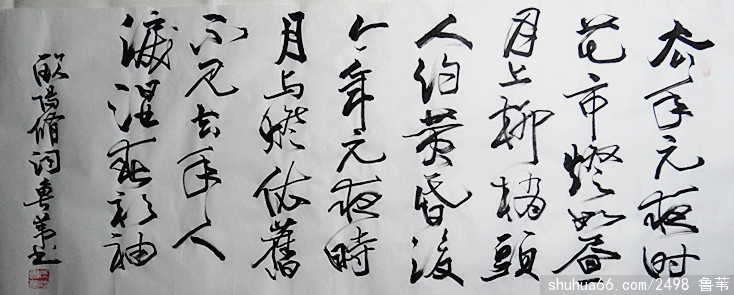 去年元夜时
花市燈如昼
月上柳梢頭
人约黄昏後
今年元夜時
月与燈依舊
不见去年人
淚湿春衫袖
欧阳修词鲁苇书
shuhua66.com/2498 鲁苇